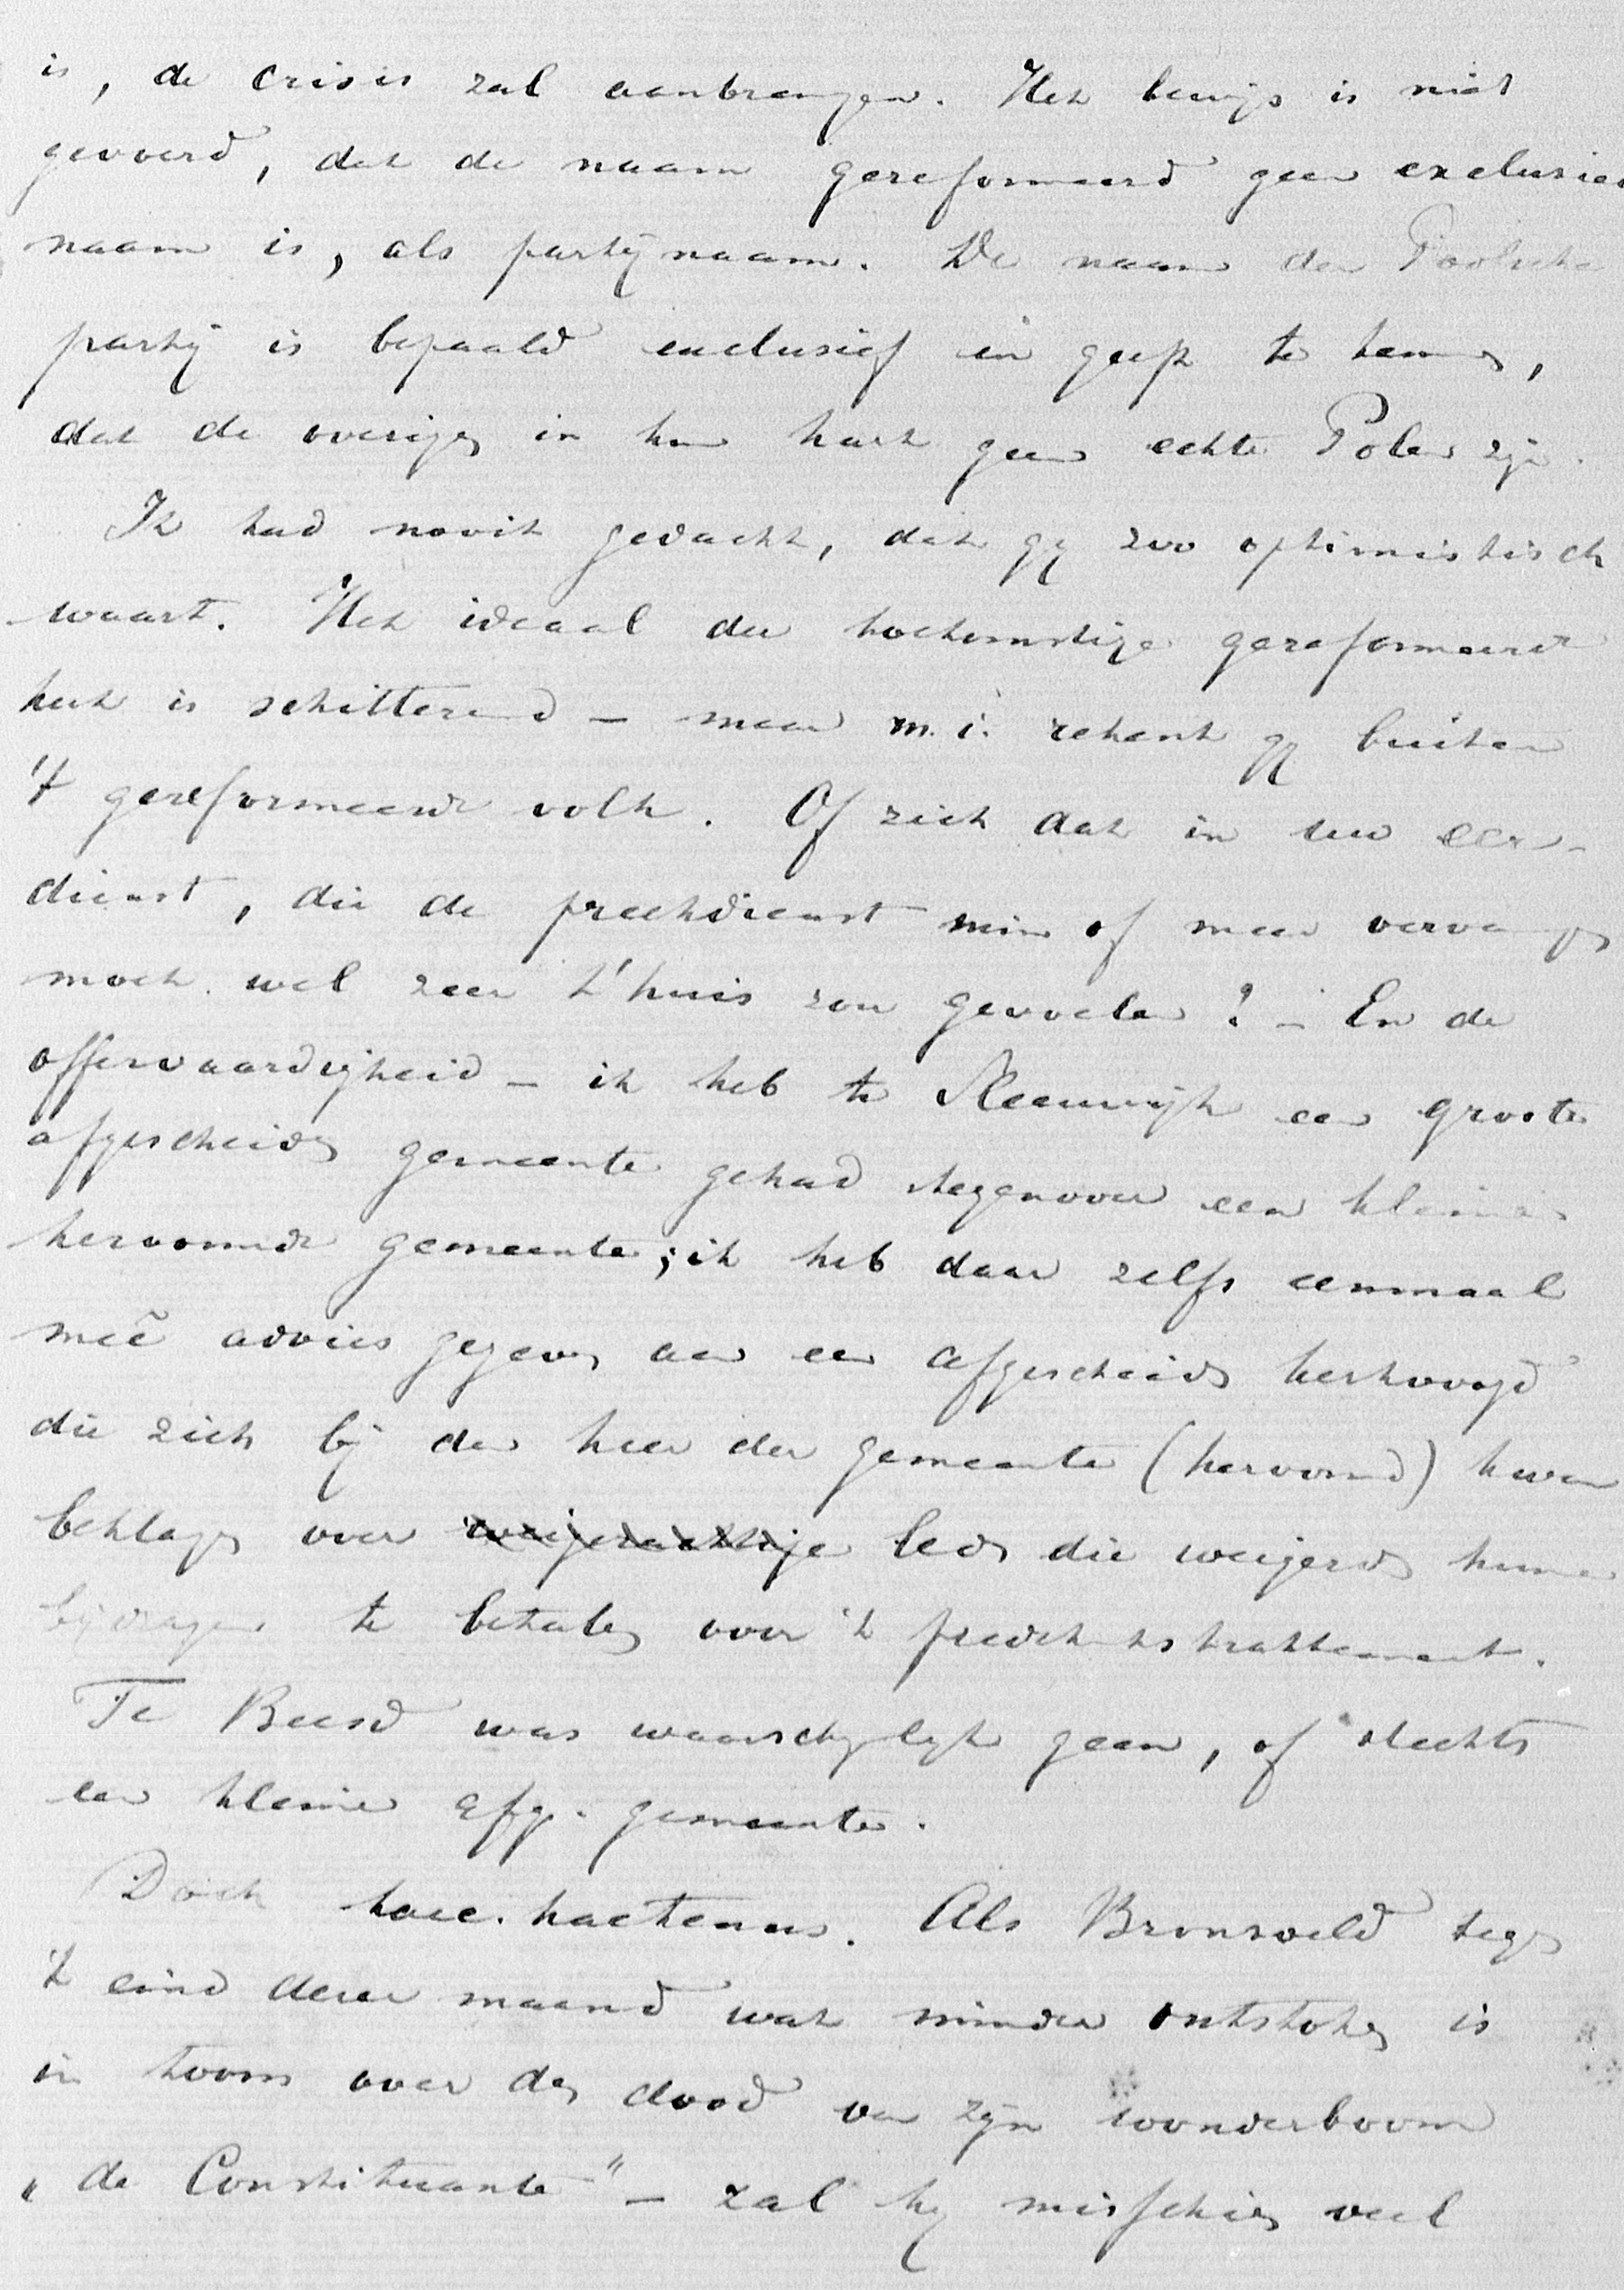 is, de crisis zal aanbrengen. Het bewijs is niet
gevoerd, dat de naam gereformeerd geen exclusieve
naam is, als partijnaam. De naam der Poolsche
partij is bepaald exclusief en geeft te kennen,
dat de overigen in hun hart geen echte Polen zijn.
Ik had nooit gedacht, dat gij zoo optimistisch
waart. Het ideaal der toekomstige gereformeerde
kerk is schitterend – maar m.i. rekent gij buiten
't gereformeerde volk. Of zich dat in uw eer-
dienst, die de preekdienst min of meer vervangen
moet wel zeer t'huis zou gevoelen? – En de
offervaardigheid – ik heb te Sleeuwijk een groote
afgescheiden gemeente gehad tegenover een kleine
hervormde gemeente; ik heb daar zelfs eenmaal
meê advies gegeven aan een afgescheiden kerkvoogd
die zich bij den heer der gemeente (hervormd) kwam
beklagen over leden die weigerden hunne
bijdragen te betalen voor 't predikantstraktement.
Te Beesd was waarschijnlijk geen, of slechts
een kleine afg. gemeente.
Doch haec hactenus. Als Bronsveld tegen
't eind dezer maand wat minder ontstoken is
in toorn over den dood van zijn wonderboom
„de Constituante" – zal hij misschien veel